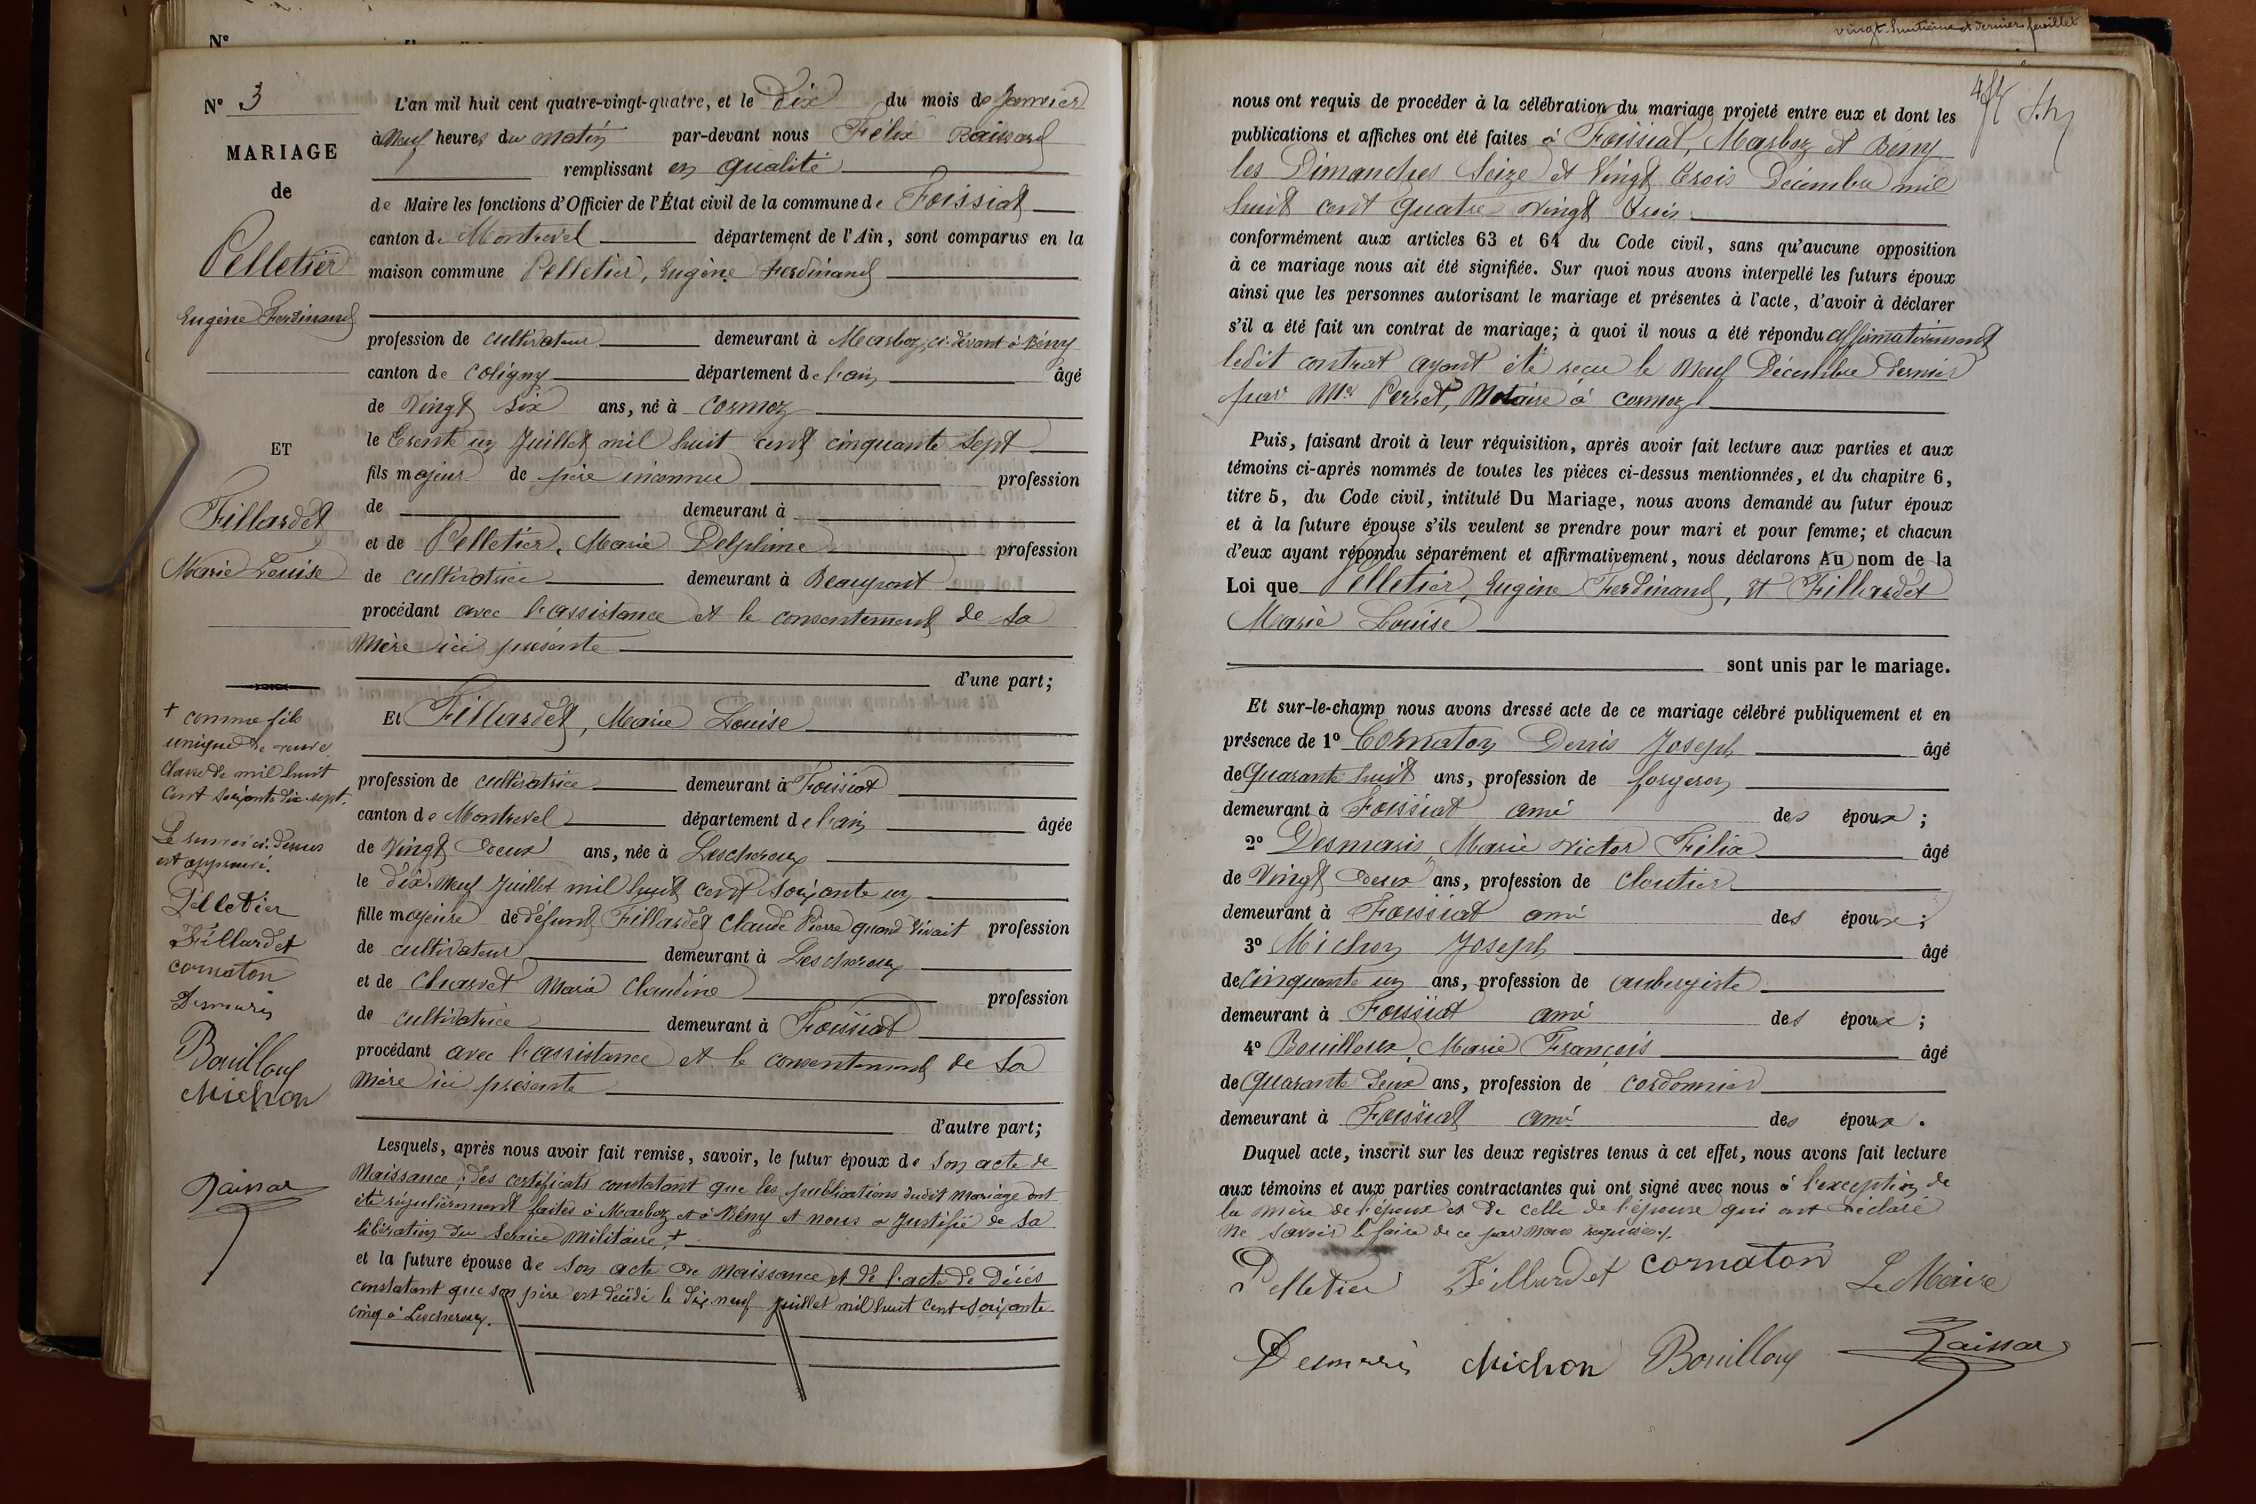 N°
vingt-huitième et dernier feuillet
N° 3
MARIAGE
de
Pelletier
Eugène Ferdinand
ET
Fillardet
Marie Louise
+ comme fils
unique de veuve
classe de mil huit
cent soixante dix-sept.
Le renvoi ci-dessus
est approuvé.
Pelletier
Fillardet
cornaton
Desmaris
Bouilloux
Michon
Raissard
L'an mil huit cent quatre-vingt-quatre, et le Dix du mois de Janvier
à Neuf heures du Matin par-devant nous Félix Raissard
remplissant en qualité
de Maire les fonctions d'Officier de l'État civil de la commune de Foissiat
canton de Montrevel département de l'Ain, sont comparus en la
maison commune Pelletier, Eugène Ferdinand
profession de cultivateur demeurant à Marboz, ci-devant à Bény
canton de Coligny département de l'ain âgé
de Vingt six ans, né à Cormoz
le trente un Juillet mil huit cent cinquante sept
fils majeur de père inconnu profession
de demeurant à
et de Pelletier, Marie Delphine profession
de cultivatrice demeurant à Beaupont
procédant avec l'assistance et le consentement de sa
Mère ici présente
d'une part;
Et Fillardet, Marie Louise
profession de cultivatrice demeurant à Foissiat
canton de Montrevel département de l'ain âgée
de Vingt deux ans, née à Lescheroux
le dix-Neuf Juillet mil huit cent soixante un
fille majeure de défunt Fillardet Claude Pierre quand vivait profession
de cultivateur demeurant à Lescheroux
et de Charvet Marie Claudine profession
de cultivatrice demeurant à Foissiat
procédant avec l'assistance et le consentement de sa
Mère ici présente
d'autre part;
Lesquels, après nous avoir fait remise, savoir, le futur époux de son acte de
Naissance, des certificats constatant que les publications dudit mariage ont
été régulièrement faites à Marboz et à Bény et nous a justifié de sa
libération du service militaire, +
et la future épouse de son acte de Naissance et de l'acte de décès
constatant que son père est décédé le dix neuf juillet mil huit cent soixante
cinq à Lescheroux.
nous ont requis de procéder à la célébration du mariage projeté entre eux et dont les
publications et affiches ont été faites à Foissiat, Marboz et Bény
les Dimanches Seize et Vingt trois Décembre mil
huit cent Quatre Vingt trois
conformément aux articles 63 et 64 du Code civil, sans qu'aucune opposition
à ce mariage nous ait été signifiée. Sur quoi nous avons interpellé les futurs époux
ainsi que les personnes autorisant le mariage et présentes à l'acte, d'avoir à déclarer
s'il a été fait un contrat de mariage; à quoi il nous a été répondu affirmativement
ledit contrat ayant été reçu le Neuf Décembre dernier
par Me Perret, Notaire à Cormoz
Puis, faisant droit à leur réquisition, après avoir fait lecture aux parties et aux
témoins ci-après nommés de toutes les pièces ci-dessus mentionnées, et du chapitre 6,
titre 5, du Code civil, intitulé Du Mariage, nous avons demandé au futur époux
et à la future épouse s'ils veulent se prendre pour mari et pour femme; et chacun
d'eux ayant répondu séparément et affirmativement, nous déclarons Au nom de la
Loi que Pelletier, Eugène Ferdinand, et Fillardet
Marie Louise
sont unis par le mariage.
Et sur-le-champ nous avons dressé acte de ce mariage célébré publiquement et en
présence de 1° Cornaton Denis Joseph âgé
de Quarante huit ans, profession de forgeron
demeurant à Foissiat ami des époux;
2° Desmaris Marie Victor Félix âgé
de Vingt deux ans, profession de cloutier
demeurant à Foissiat ami des époux;
3° Michon Joseph âgé
de Cinquante un ans, profession de aubergiste
demeurant à Foissiat ami des époux;
4° Bouilloux, Marie François âgé
de Quarante deux ans, profession de cordonnier
demeurant à Foissiat ami des époux.
Duquel acte, inscrit sur les deux registres tenus à cet effet, nous avons fait lecture
aux témoins et aux parties contractantes qui ont signé avec nous à l'exception de
la mère de l'époux et de celle de l'épouse qui ont déclaré
ne savoir le faire de ce par Nous requises.
Pelletier Fillardet cornaton Le Maire
Desmaris Michon Bouilloux Raissard